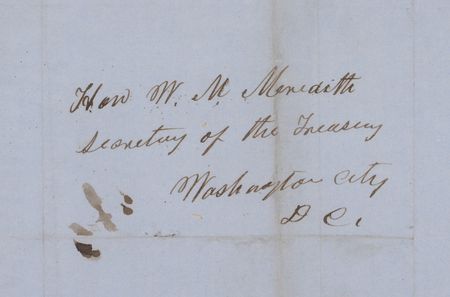 Hon W. M. Meredith
Secretary of the Treasury
Washington City
D C.